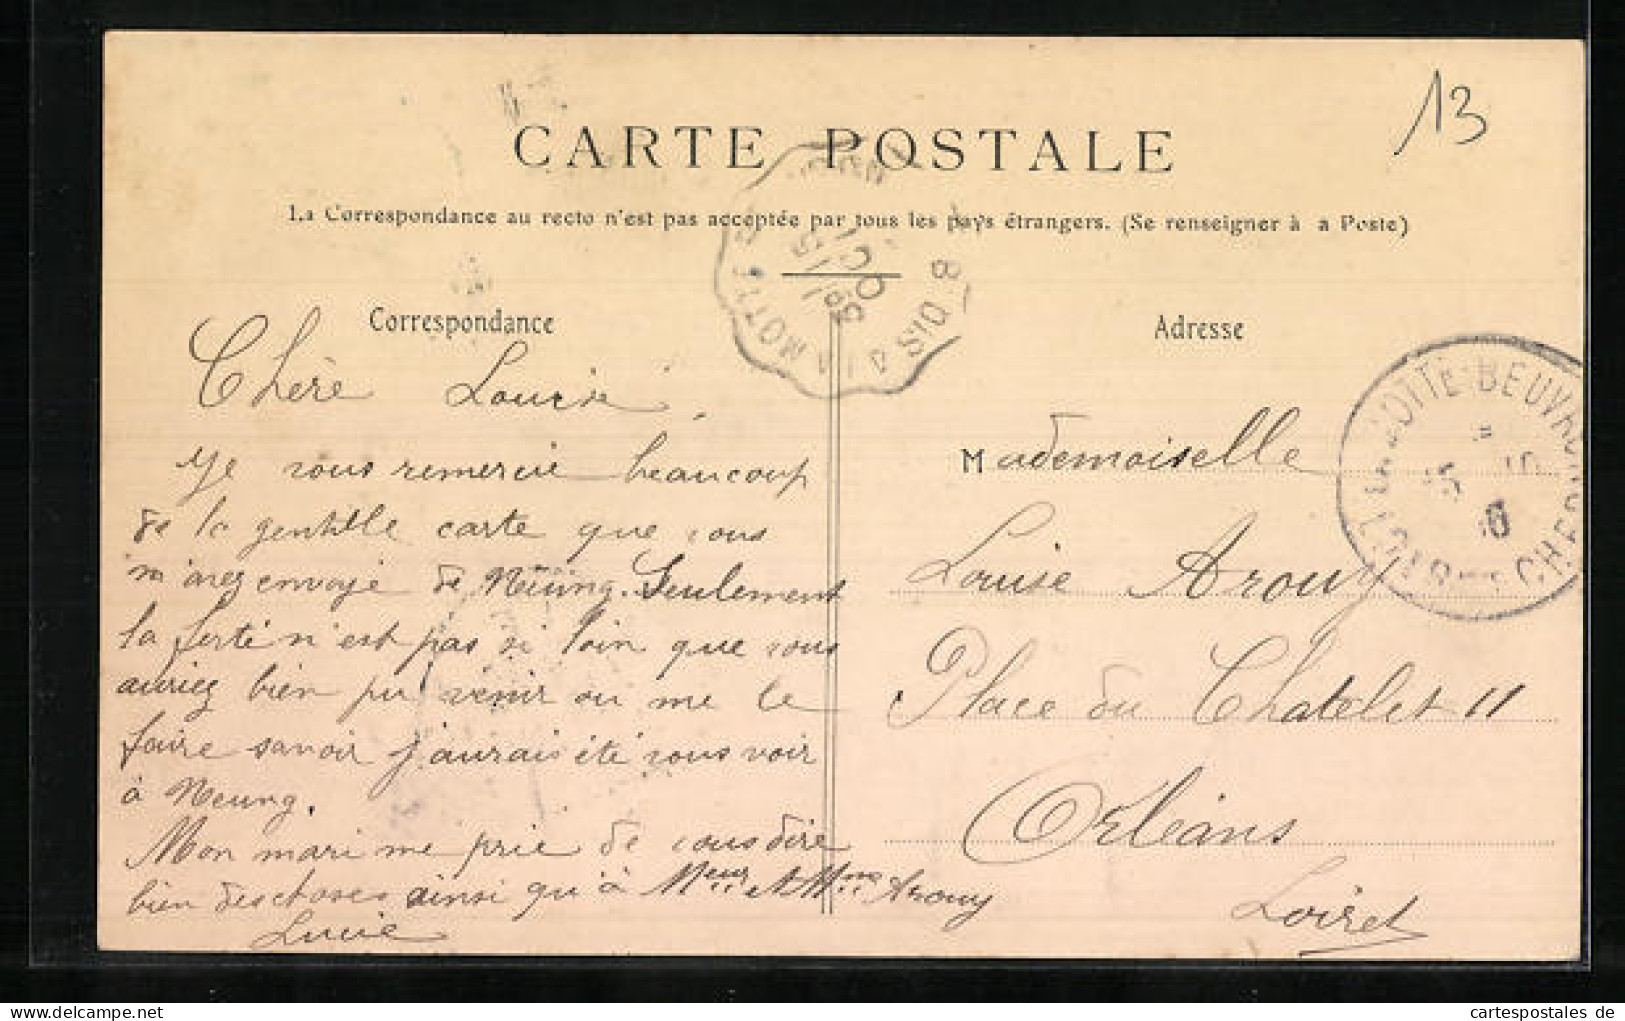 13
CARTE POSTALE
La Correspondance au recto n'est pas acceptée par tous les pays étrangers. (Se renseigner à a Poste)
Correspondance
Chère Louise,
Je vous remercie beaucoup
de la gentille carte que vous
m'avez envoyé de Neung. Seulement
la ferté n'est pas si loin que vous
auriez bien pu venir ou me le
faire savoir j'aurais été vous voir
à Neung.
Mon mari me prie de vous dire
bien des choses ainsi qu'à Meur et Mme Arouy
Lucie
Adresse
Mademoiselle
Louise Arouy
Place du Chatelet 11
Orléans
Loiret
LA MOTTE-BEUVRON
LOIR-ET-CHER
cartespostales de